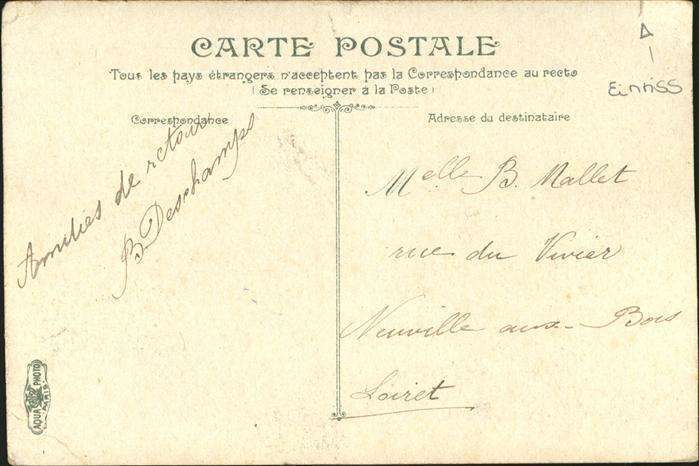 CARTE POSTALE
Tous les pays étrangers n'acceptent pas la Correspondance au recto
(Se renseigner à la Poste)
Einriss
Correspondance
Adresse du destinataire
Amitiés de retour
B. Deschamps
Melle B. Mallet
rue du Vivier
Neuville aux-Bois
Loiret
AQUA PHOTO
PARIS